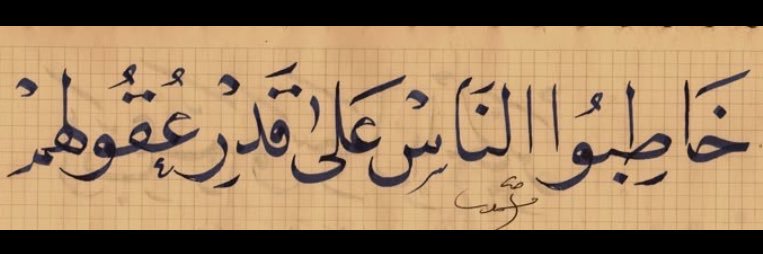 خَاطِبُوا النَاسِ عَلىٰ قَدْرِ عُقُولِهمْ